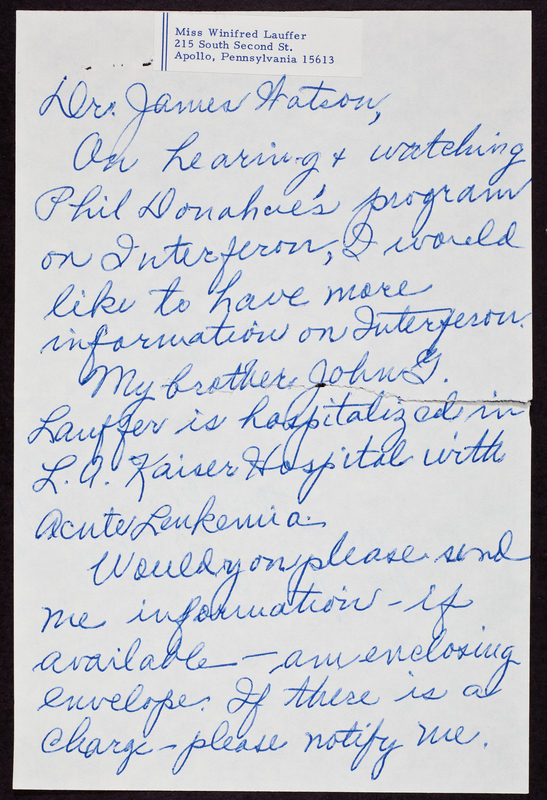 Miss Winifred Lauffer
215 South Second St.
Apollo, Pennsylvania 15613
Dr. James Watson,
On hearing & watching
Phil Donahue's program
on Interferon, I would
like to have more
information on Interferon.
My brother, John G.
Lauffer is hospitalized in
L.A. Kaiser Hospital with
Acute Leukemia.
Would you please send
me information - if
available - am enclosing
envelope. If there is a
charge - please notify me.